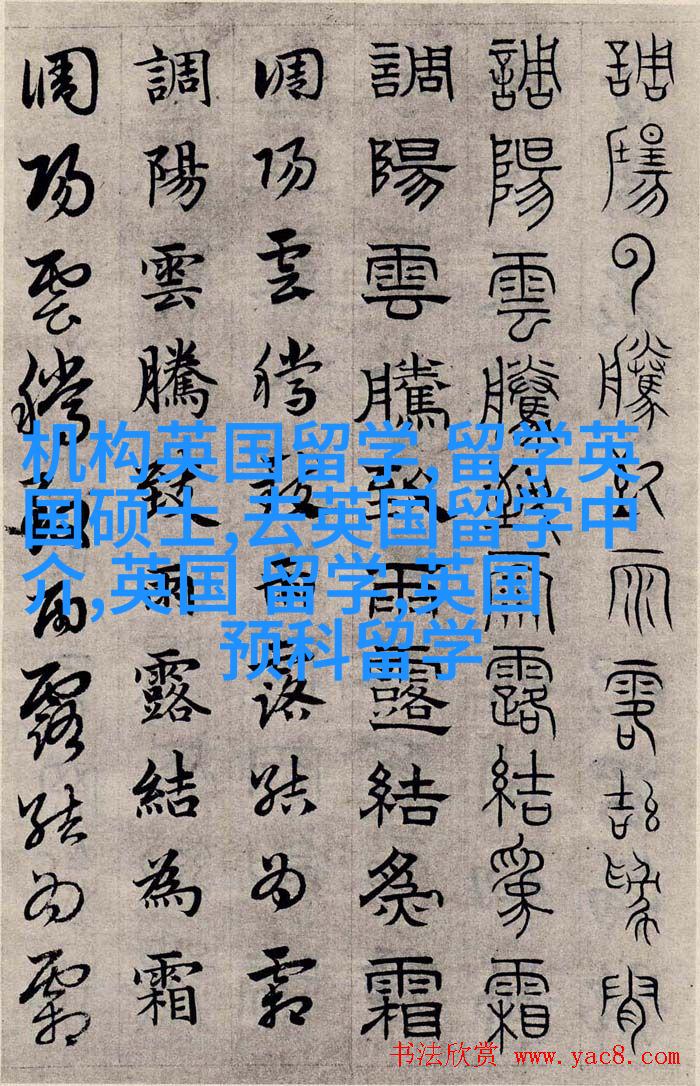 調陽雲騰致雨露結為霜
調陽雲騰致雨露結為霜
調陽雲騰致雨露結為霜
調陽雲騰致雨露結為霜
調陽雲騰致雨露結為霜
調陽雲騰致雨露結為霜
机构英国留学,留学英
国硕士,去英国留学中
介,英国 留学,英国
预科留学
书法欣赏 www.yac8.com